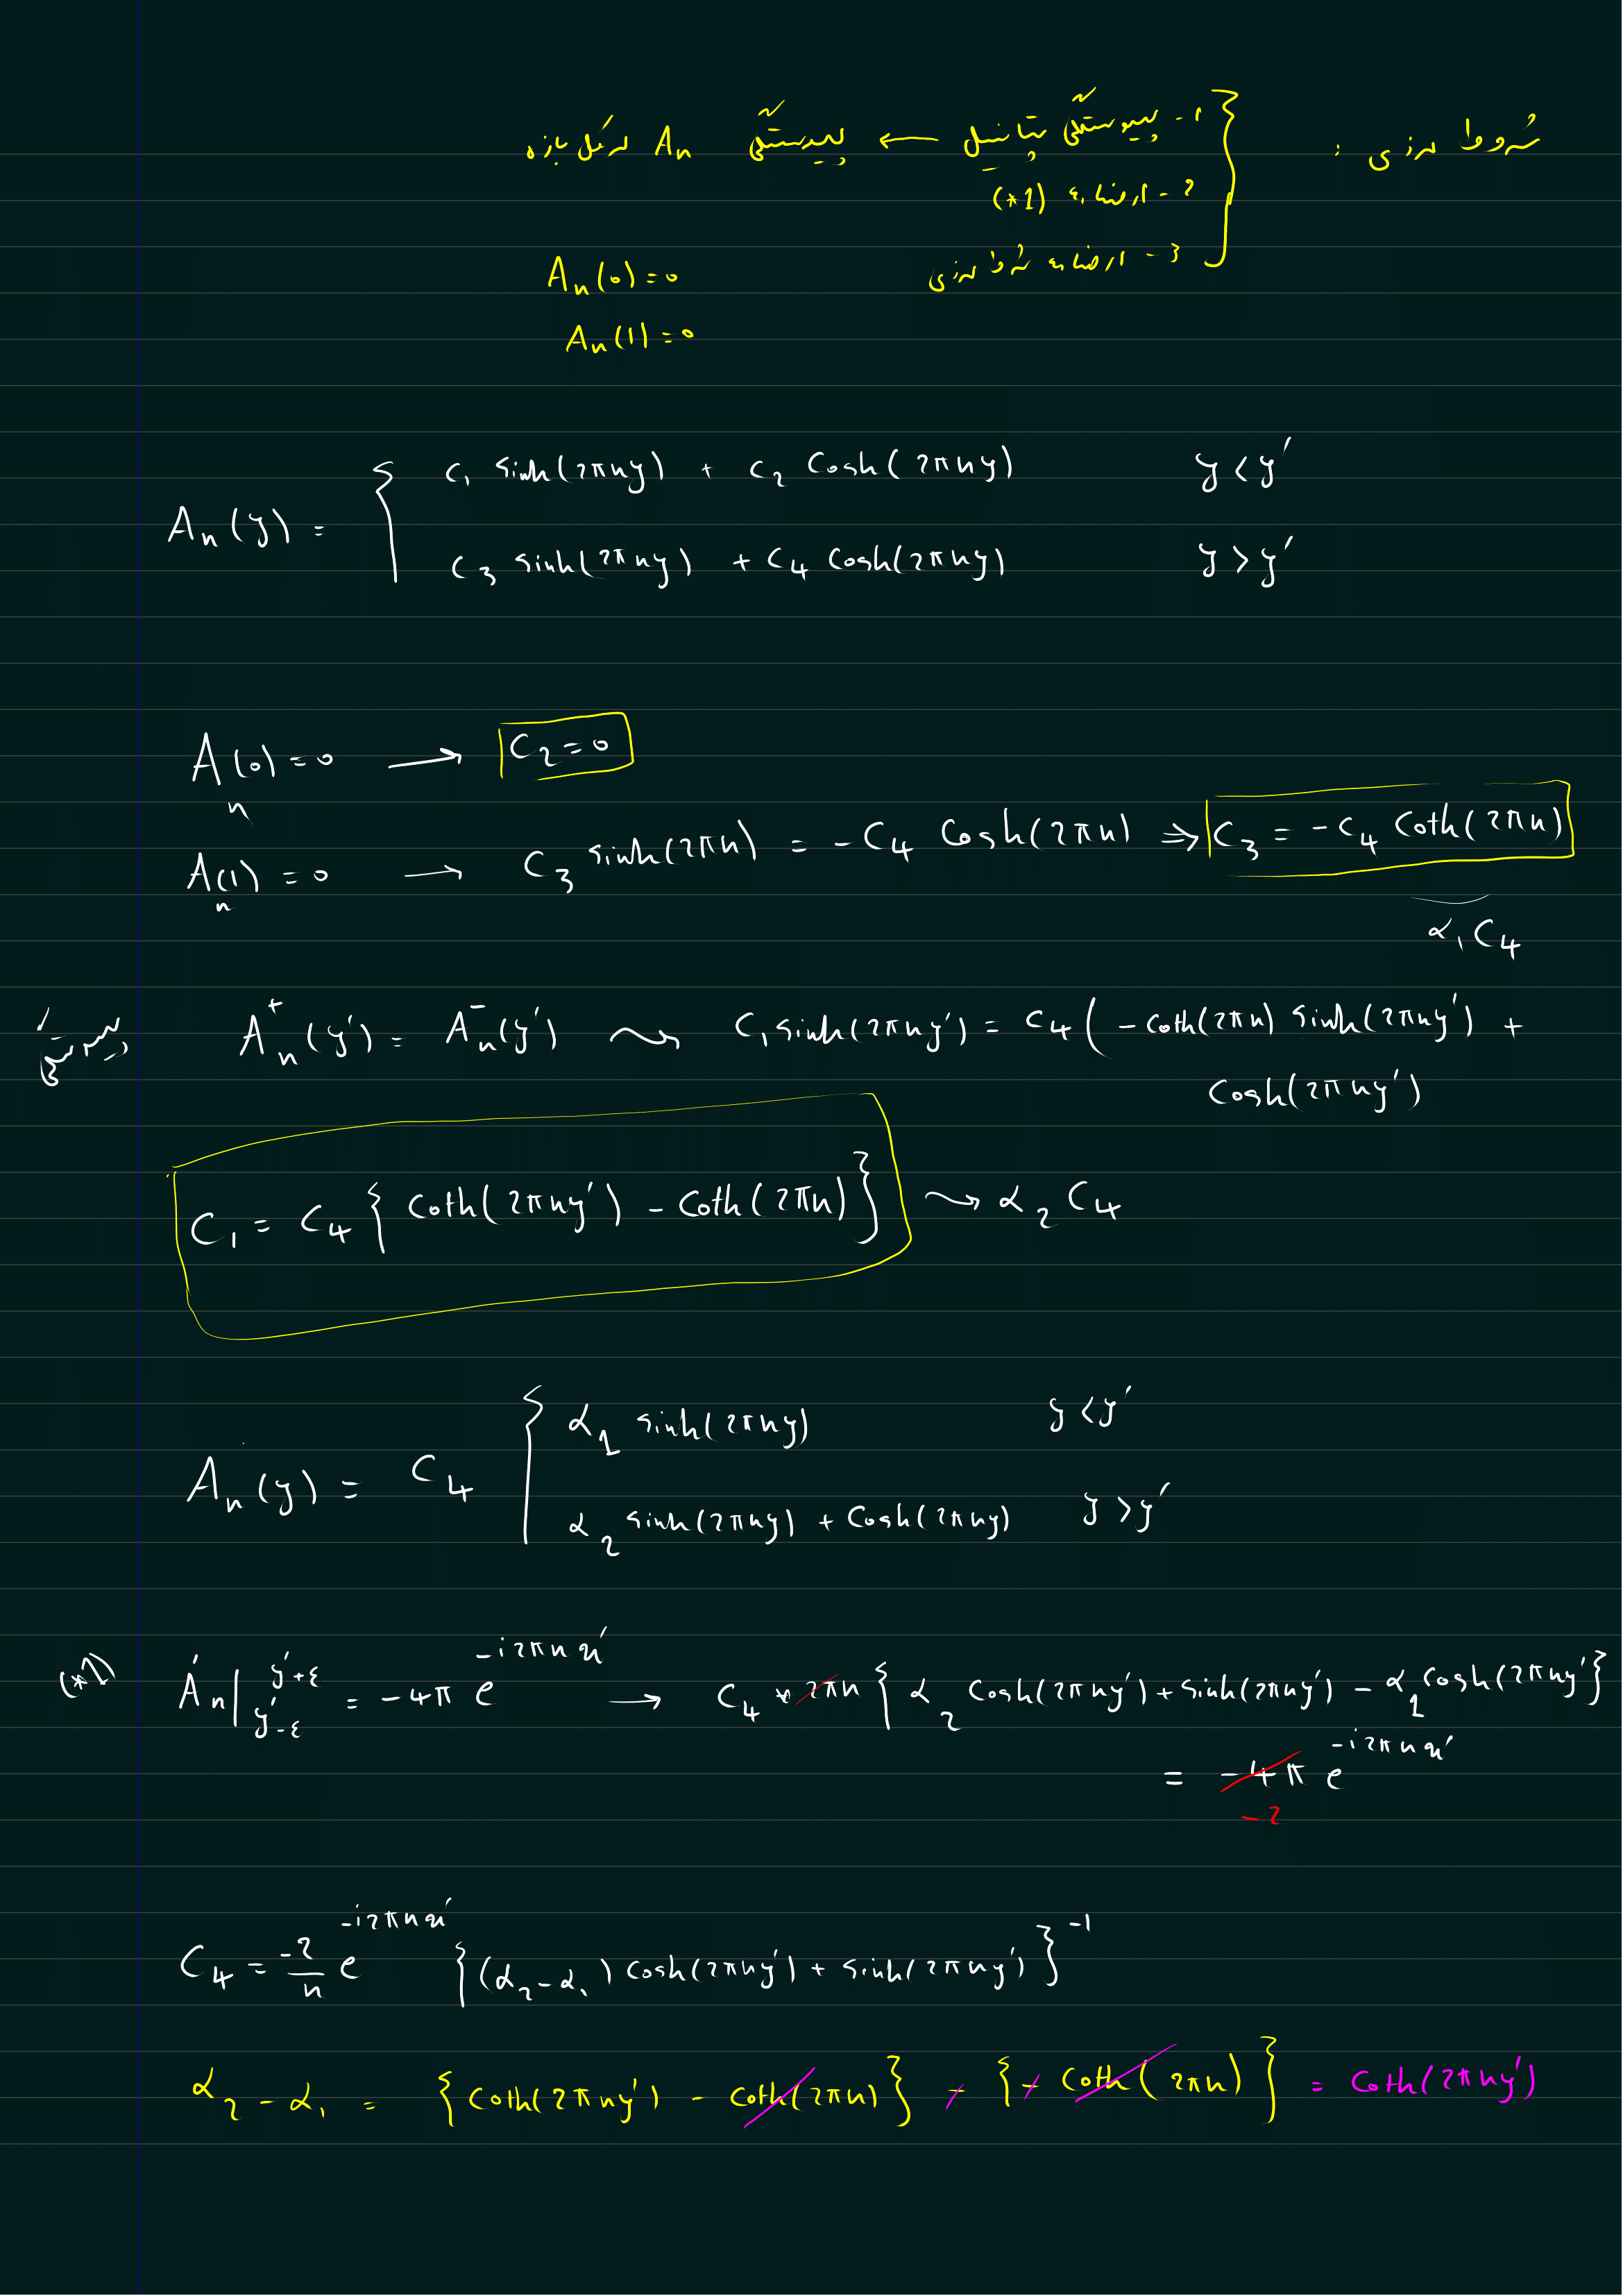 شروط مرزی :
1 - پیوستگی پتانسیل ← پیوستگی An در کل بازه
2 - ارضاء (*1)
3 - ارضاء شرط مرزی
An(0) = 0
An(1) = 0
An(y) = { C1 sinh(2πny) + C2 Cosh(2πny) y < y'
C3 sinh(2πny) + C4 Cosh(2πny) y > y'
An(0) = 0 → C2 = 0
An(1) = 0 → C3 sinh(2πn) = -C4 Cosh(2πn) ⇒ C3 = -C4 Coth(2πn)
α1 C4
پیوستگی An⁺(y') = An⁻(y') ⇝ C1 sinh(2πny') = C4 ( -Coth(2πn) sinh(2πny') +
Cosh(2πny')
C1 = C4 { Coth(2πny') - Coth(2πn) } ⇝ α2 C4
An(y) = C4 { α1 sinh(2πny) y < y'
α2 sinh(2πny) + Cosh(2πny) y > y'
(*1) A'n |_{y'-ε}^{y'+ε} = -4π e^{-i2πnx'} → C4 * 2πn { α2 Cosh(2πny') + sinh(2πny') - α1 Cosh(2πny') }
= -4π e^{-i2πnx'}
-2
C4 = -2/n e^{-i2πnx'} { (α2 - α1) Cosh(2πny') + sinh(2πny') }^{-1}
α2 - α1 = { Coth(2πny') - Coth(2πn) } - { - Coth(2πn) } = Coth(2πny')